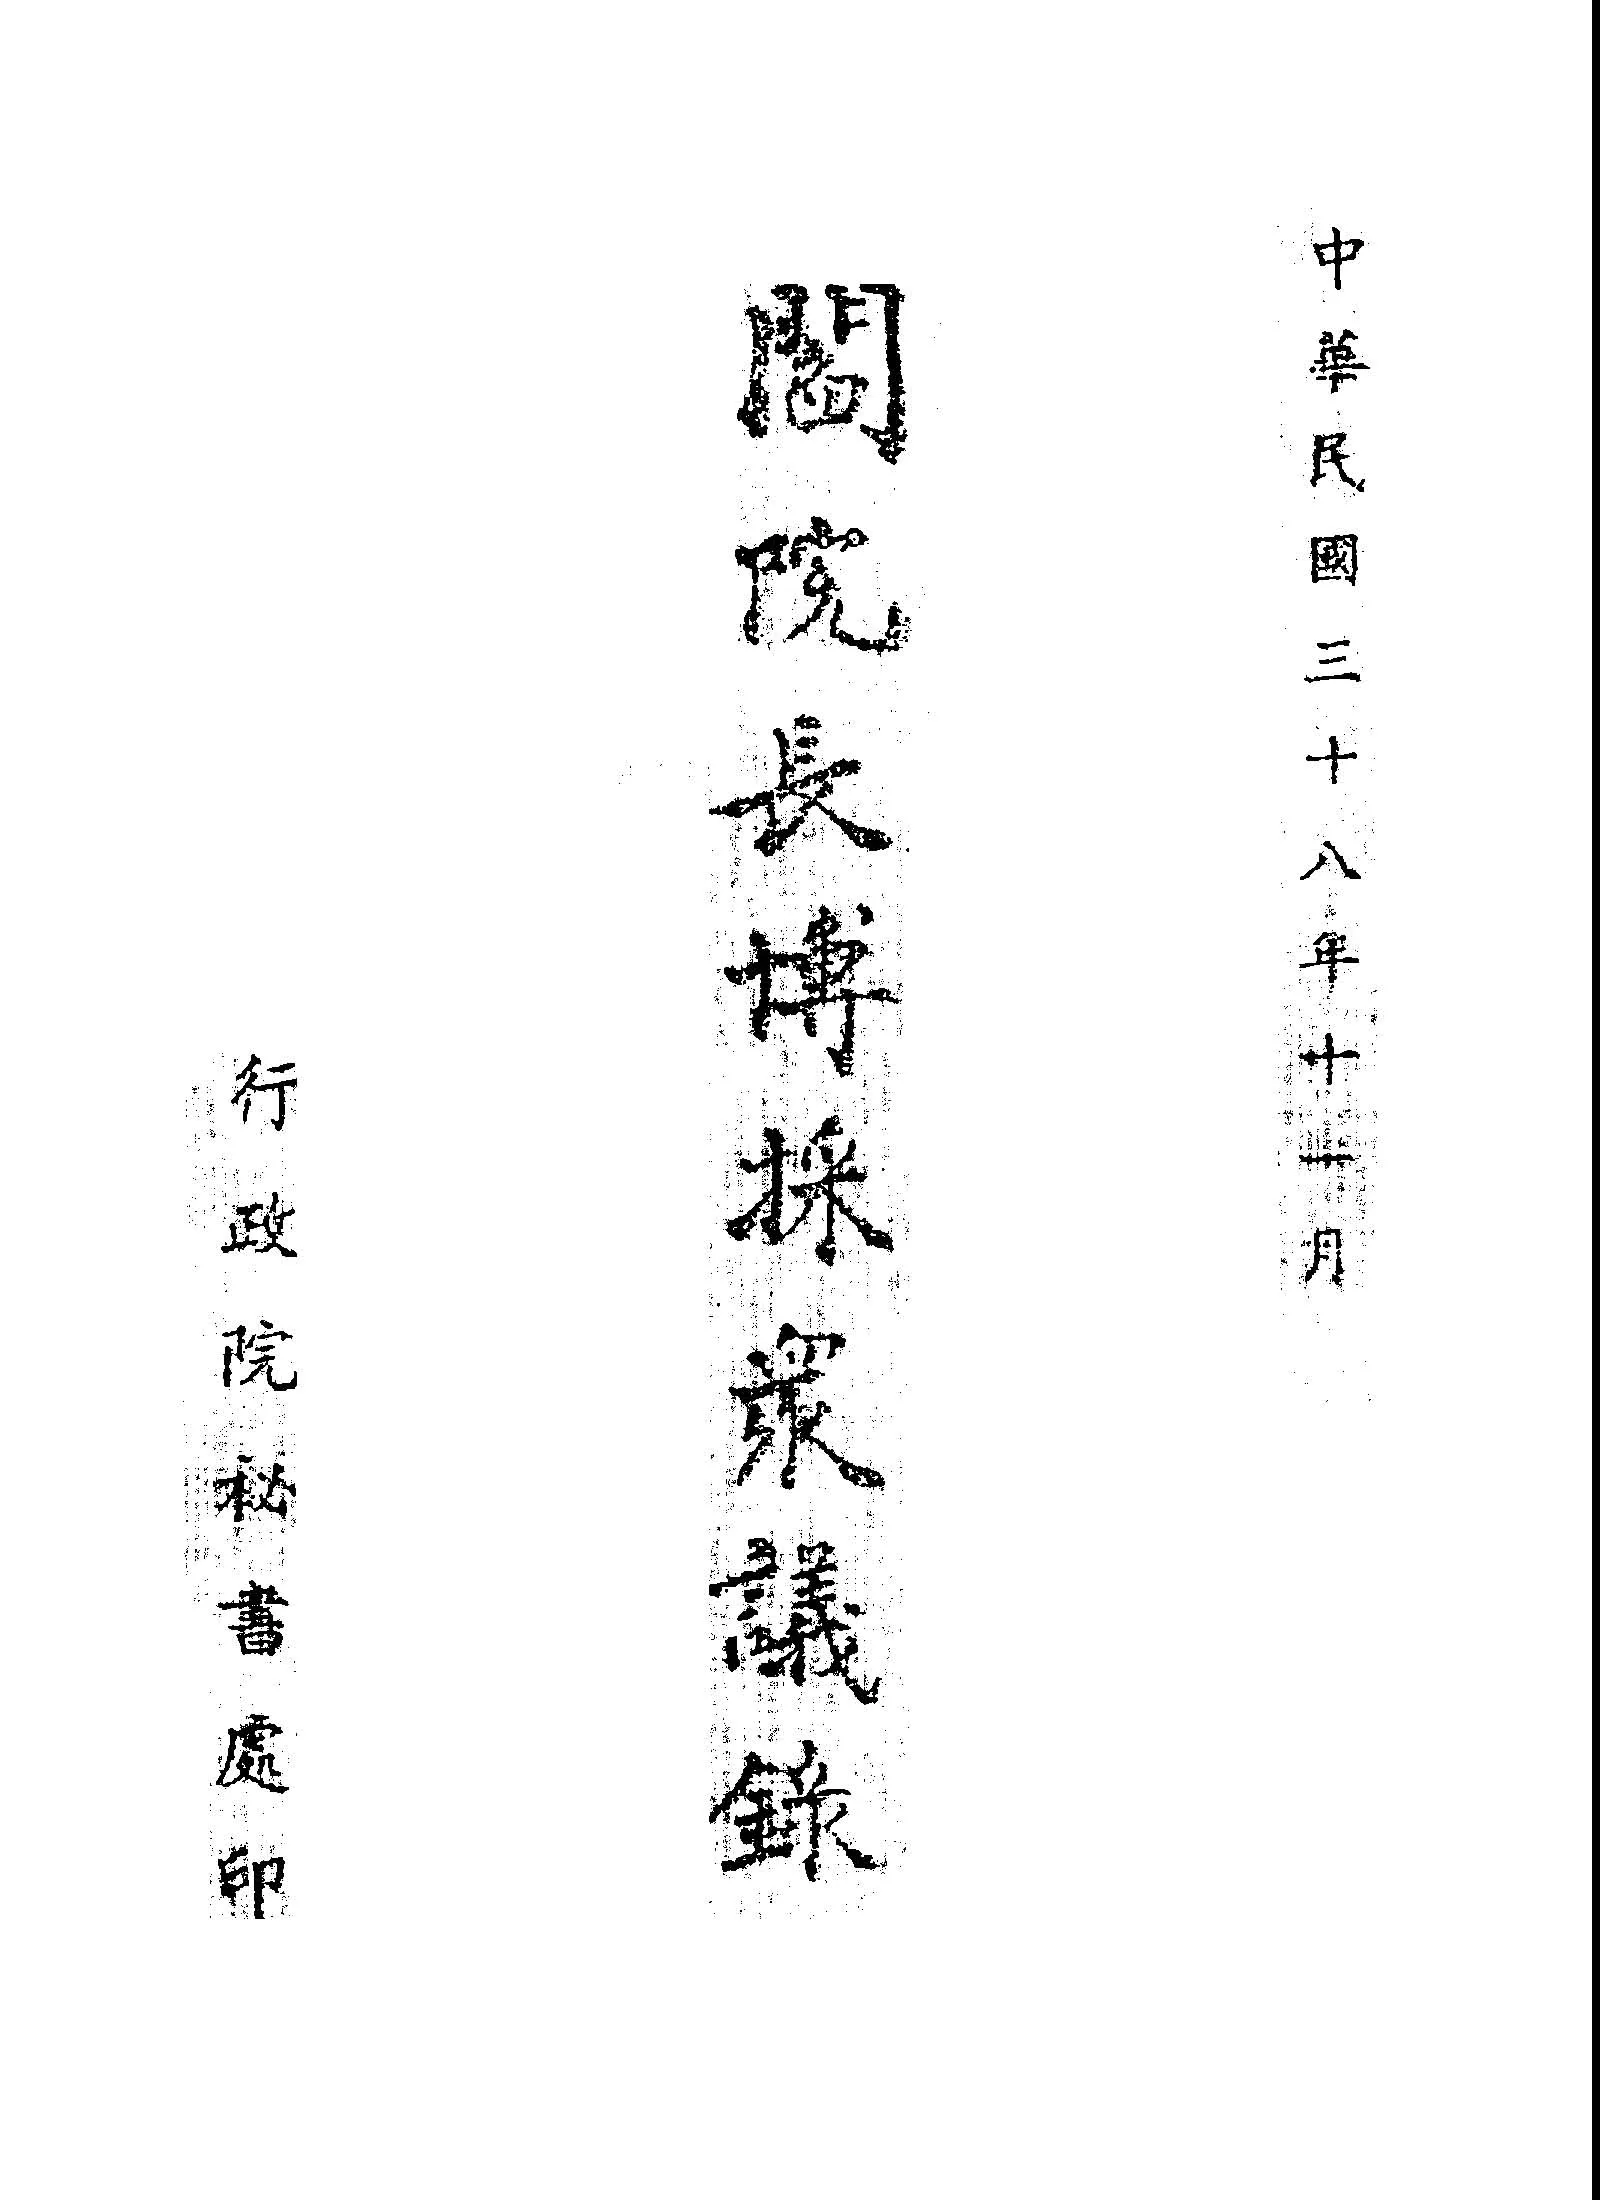 中華民國三十八年十一月
閻院長博採眾議錄
行政院秘書處印